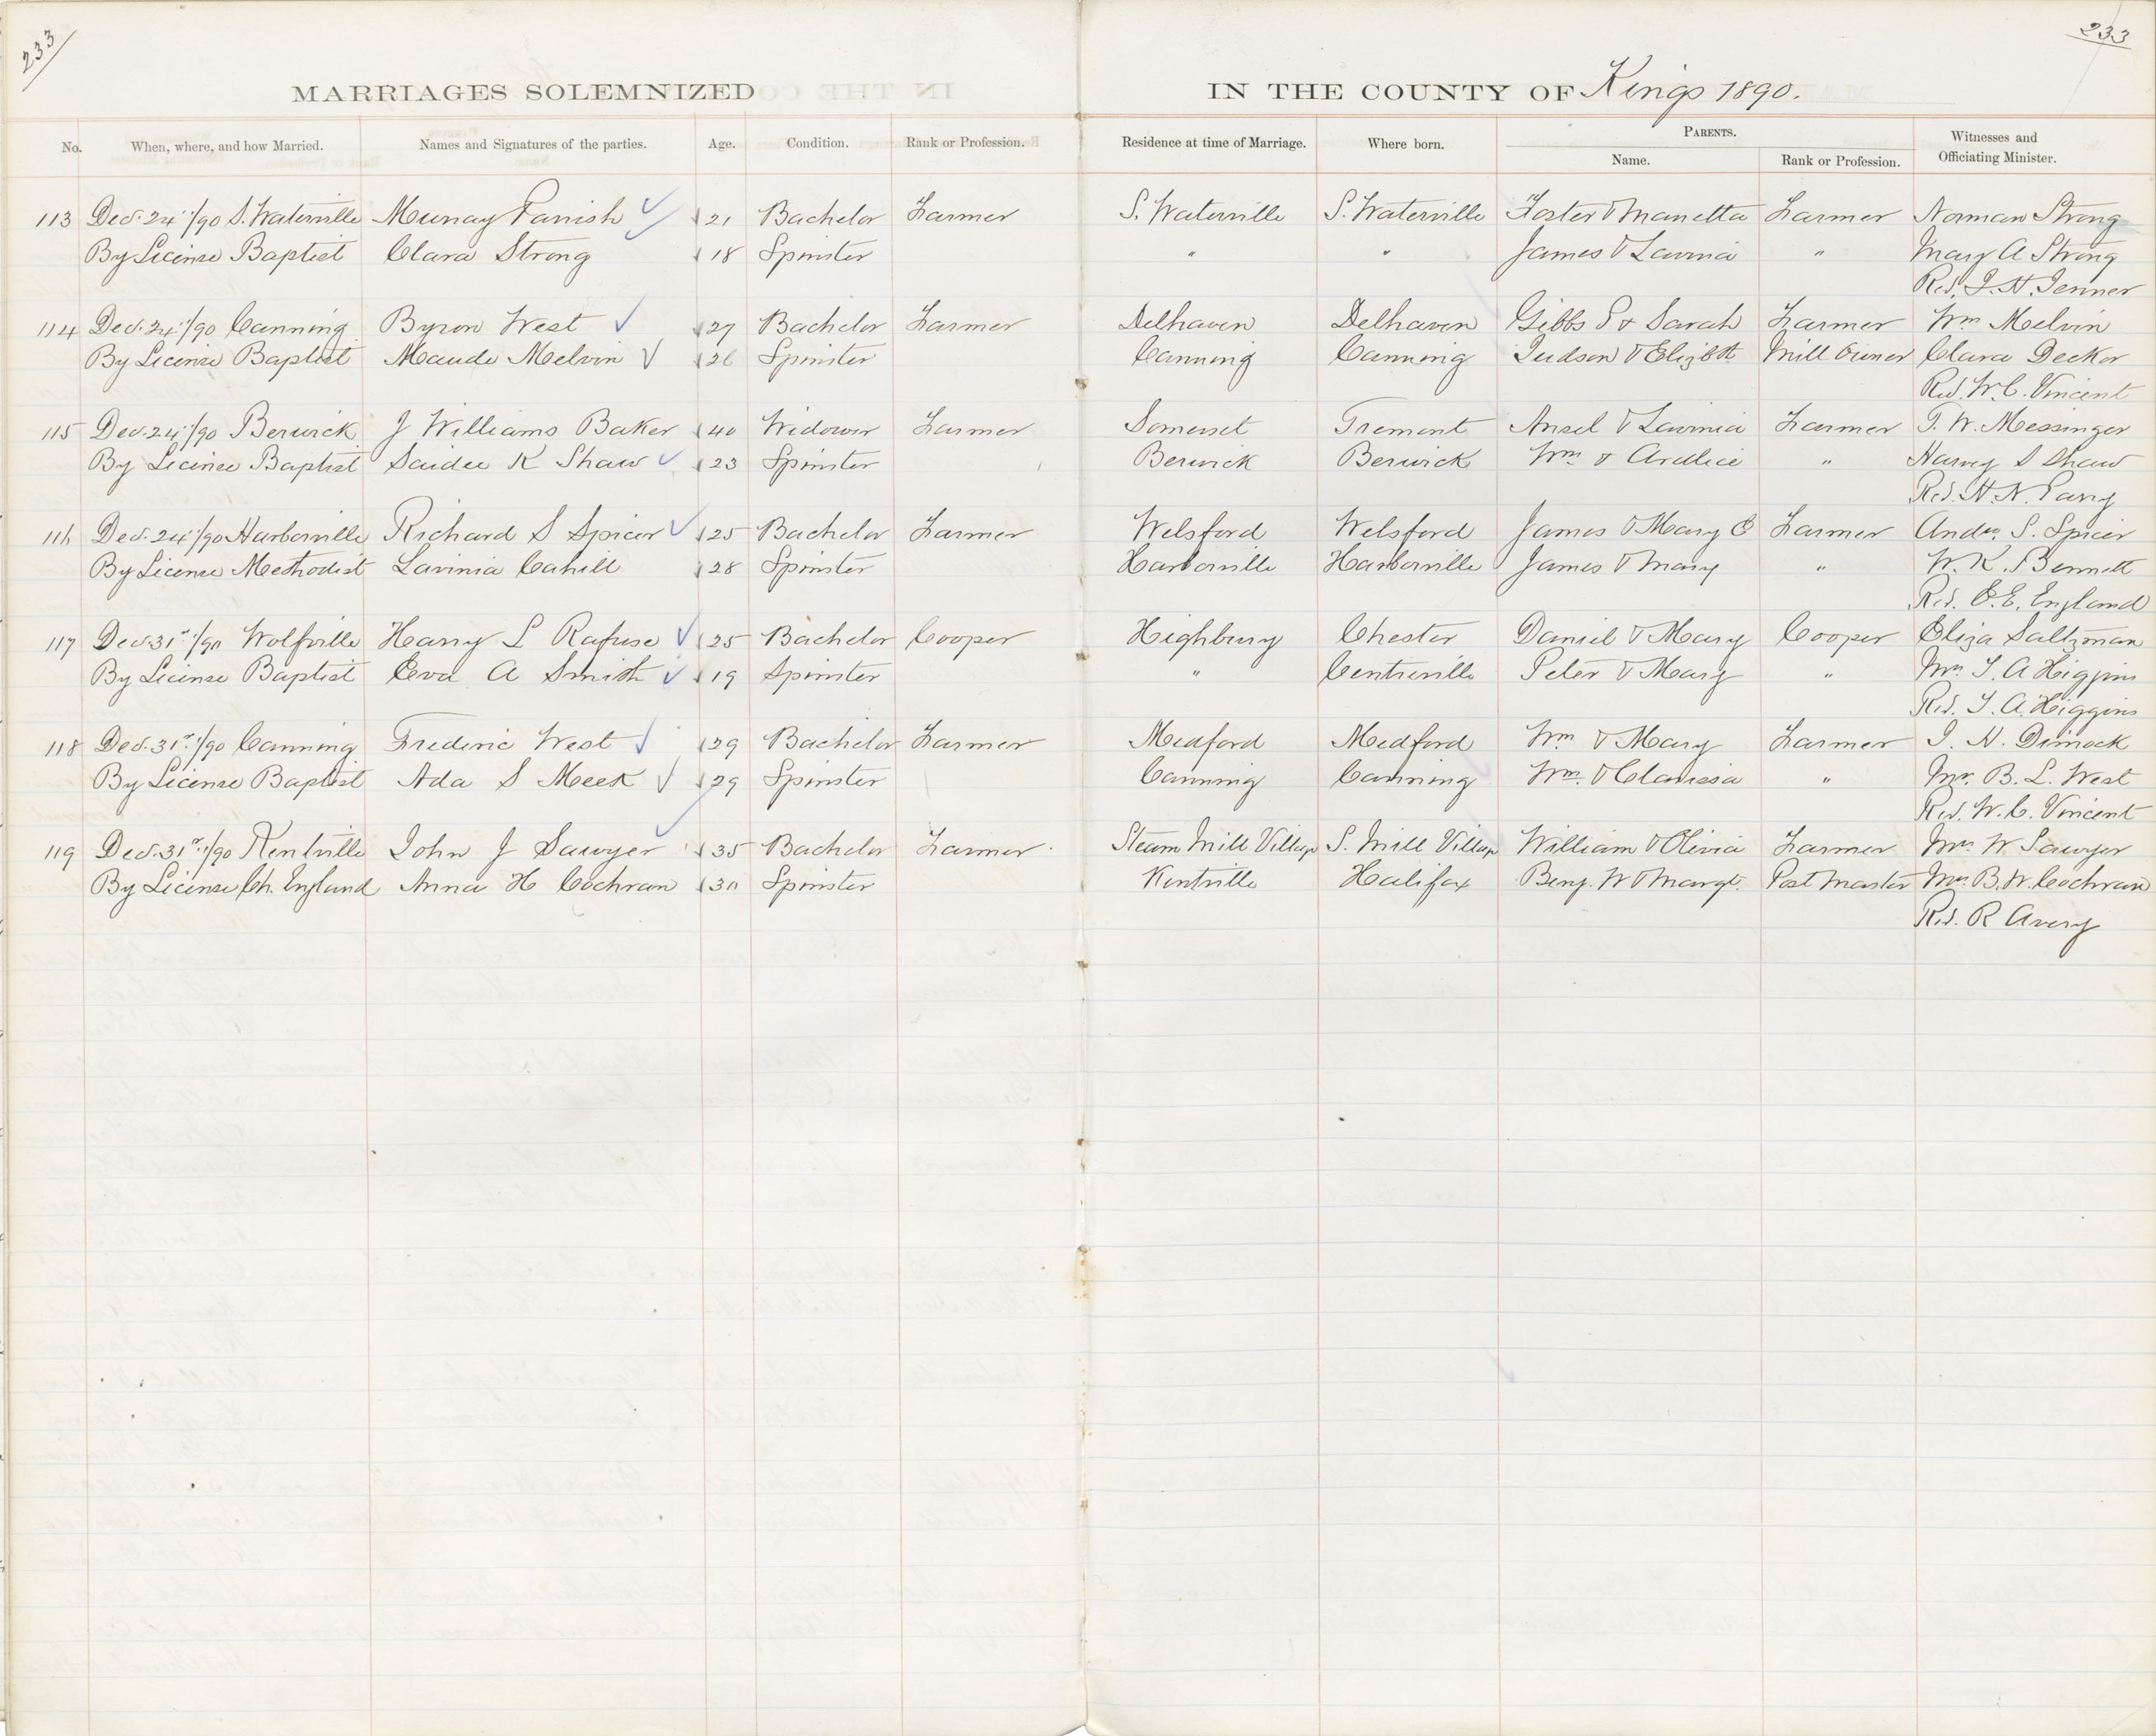 233 233
MARRIAGES SOLEMNIZED IN THE COUNTY OF Kings 1890.
No. When, where, and how Married. Names and Signatures of the parties. Age. Condition. Rank or Profession. Residence at time of Marriage. Where born. PARENTS. Witnesses and
Name. Rank or Profession. Officiating Minister.
113 Dec. 24th/90 S. Waterville Murray Parrish 21 Bachelor Farmer S. Waterville S. Waterville Foster & Manetta Farmer Norman Strong
By License Baptist Clara Strong 18 Spinster " " James & Lavinia " Mary A Strong
Rev. J. H. Jenner
114 Dec. 24th/90 Canning Byron West 27 Bachelor Farmer Delhaven Delhaven Gibbs P & Sarah Farmer Wm Melvin
By License Baptist Maude Melvin 26 Spinster Canning Canning Judson & Elizbth Mill Owner Clara Decker
Rev. W. C. Vincent
115 Dec. 24th/90 Berwick J Williams Baker 40 Widower Farmer Somerset Tremont Ansel & Lavinia Farmer T. W. Messinger
By License Baptist Saidee K Shaw 23 Spinster Berwick Berwick Wm & Ardlice " Harvey S Shaw
Rev. H. N. Parry
116 Dec. 24th/90 Harborville Richard S Spicer 25 Bachelor Farmer Welsford Welsford James & Mary E Farmer Andw. S. Spicer
By License Methodist Lavinia Cahill 28 Spinster Harborville Harborville James & Mary " W. K. Bennett
Rev. E. E. England
117 Dec. 31st/90 Wolfville Harry L Rafuse 25 Bachelor Cooper Highbury Chester Daniel & Mary Cooper Eliza Saltzman
By License Baptist Eva A Smith 19 Spinster " Centreville Peter & Mary " Mrs. T. A Higgins
Rev. T. A. Higgins
118 Dec. 31st/90 Canning Frederic West 29 Bachelor Farmer Medford Medford Wm & Mary Farmer I. N. Dimock
By License Baptist Ada S Meek 29 Spinster Canning Canning Wm. & Clarissa " Mrs. B. L. West
Rev. W. C. Vincent
119 Dec. 31st/90 Kentville John J Sawyer 35 Bachelor Farmer Steam Mill Village S. Mill Village William & Olivia Farmer Mrs W. Sawyer
By License Ch. England Anna H Cochran 30 Spinster Kentville Halifax Benj. W & Margt. Post Master Mrs. B. W. Cochran
Rev. R Avery